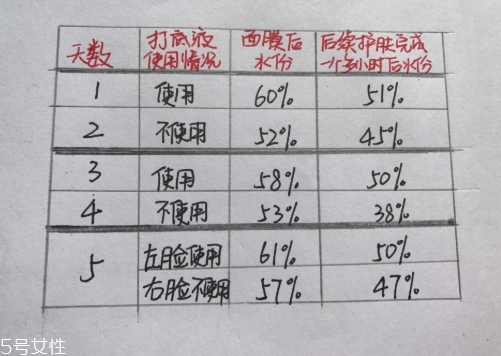 天数 打底液使用情况 面膜后水份 后续护肤完成一个小时后水份
1 使用 60% 51%
2 不使用 52% 45%
3 使用 58% 50%
4 不使用 53% 38%
5 左脸使用 61% 50%
右脸不使用 57% 47%
5号女性